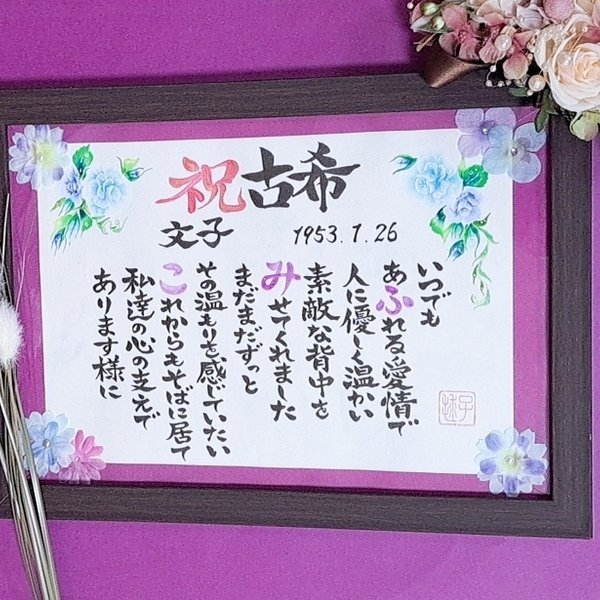 祝古希
文子 1953.7.26
いつでも
あふれる愛情で
人に優しく温かい
素敵な背中を
みせてくれました
まだまだずっと
その温もりを感じていたい
これからもそばに居て
私達の心の支えで
あります様に